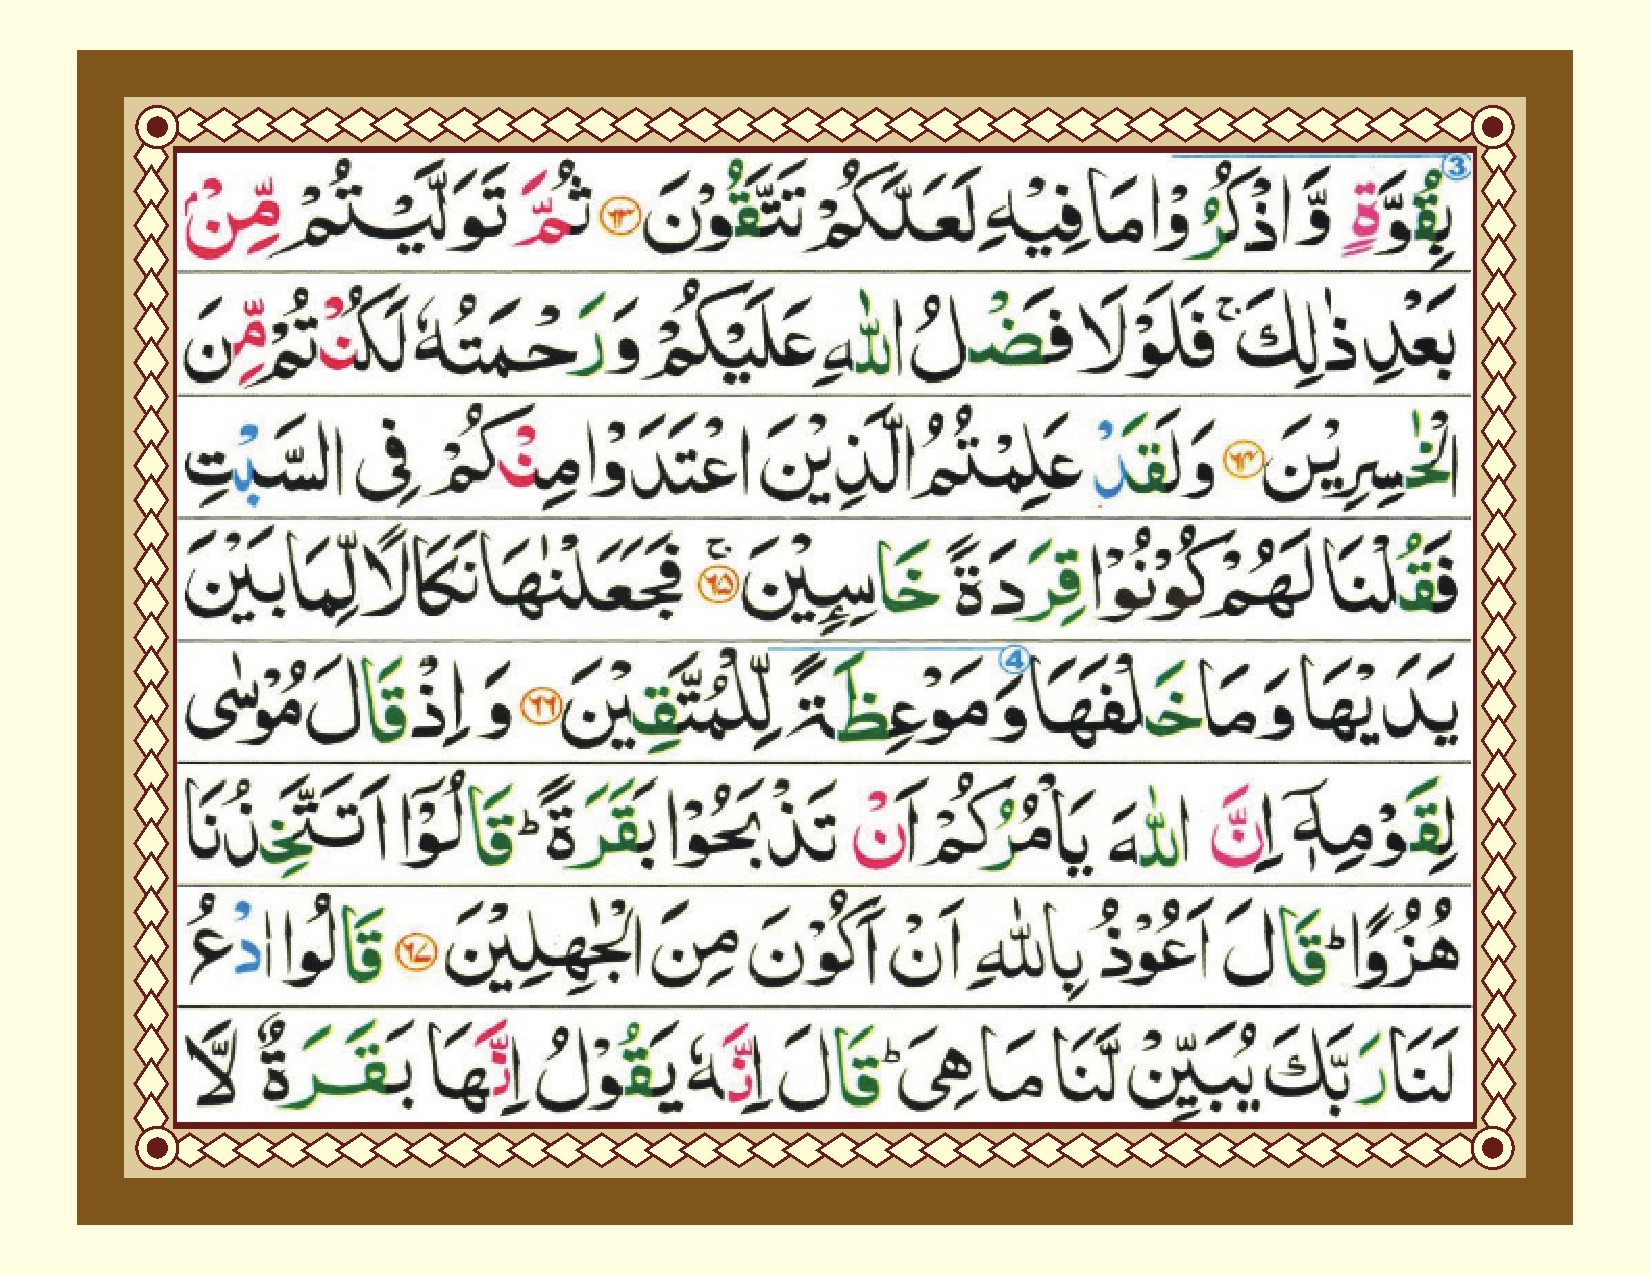 بِقُوَّةٍ وَّ اذْكُرُوْا مَا فِيْهِ لَعَلَّكُمْ تَتَّقُوْنَ ﴿۶۳﴾ ثُمَّ تَوَلَّيْتُمْ مِّنْۢ
بَعْدِ ذٰلِكَ ۚ فَلَوْ لَا فَضْلُ اللّٰهِ عَلَيْكُمْ وَ رَحْمَتُهٗ لَكُنْتُمْ مِّنَ
الْخٰسِرِيْنَ ﴿۶۴﴾ وَ لَقَدْ عَلِمْتُمُ الَّذِيْنَ اعْتَدَوْا مِنْكُمْ فِى السَّبْتِ
فَقُلْنَا لَهُمْ كُوْنُوْا قِرَدَةً خَاسِـِٕيْنَ ﴿۶۵﴾ ۚ فَجَعَلْنٰهَا نَكَالًا لِّمَا بَيْنَ
يَدَيْهَا وَ مَا خَلْفَهَا وَ مَوْعِظَةً لِّلْمُتَّقِيْنَ ﴿۶۶﴾ وَ اِذْ قَالَ مُوْسٰى
لِقَوْمِهٖۤ اِنَّ اللّٰهَ يَاْمُرُكُمْ اَنْ تَذْبَحُوْا بَقَرَةً ؕ قَالُوْۤا اَتَتَّخِذُنَا
هُزُوًا ؕ قَالَ اَعُوْذُ بِاللّٰهِ اَنْ اَكُوْنَ مِنَ الْجٰهِلِيْنَ ﴿۶۷﴾ قَالُوا ادْعُ
لَنَا رَبَّكَ يُبَيِّنْ لَّنَا مَا هِىَ ؕ قَالَ اِنَّهٗ يَقُوْلُ اِنَّهَا بَقَرَةٌ لَّا